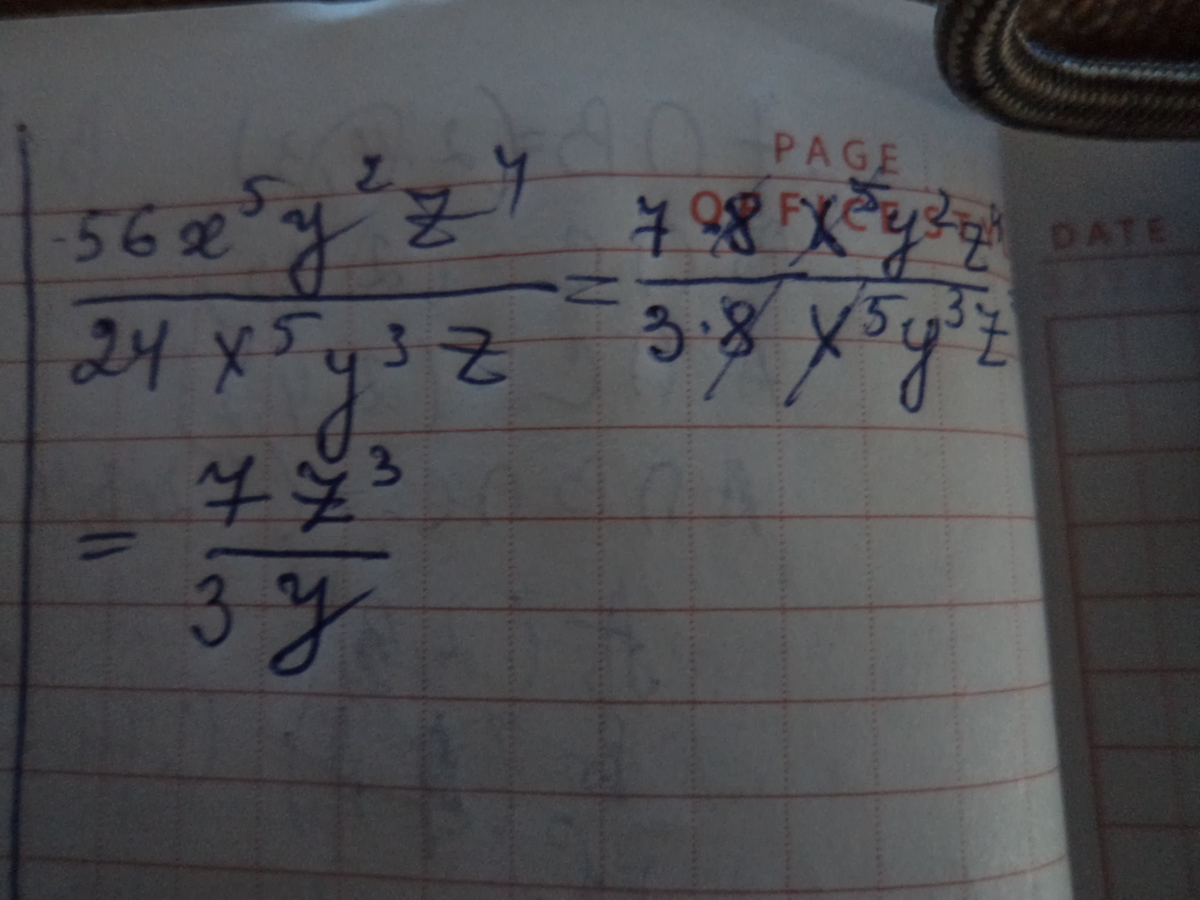 PAGE
OFFICE STK
DATE
56x⁵y²z⁴ / 24x⁵y³z = 7·8x⁵y²z⁴ / 3·8x⁵y³z
= 7z³ / 3y